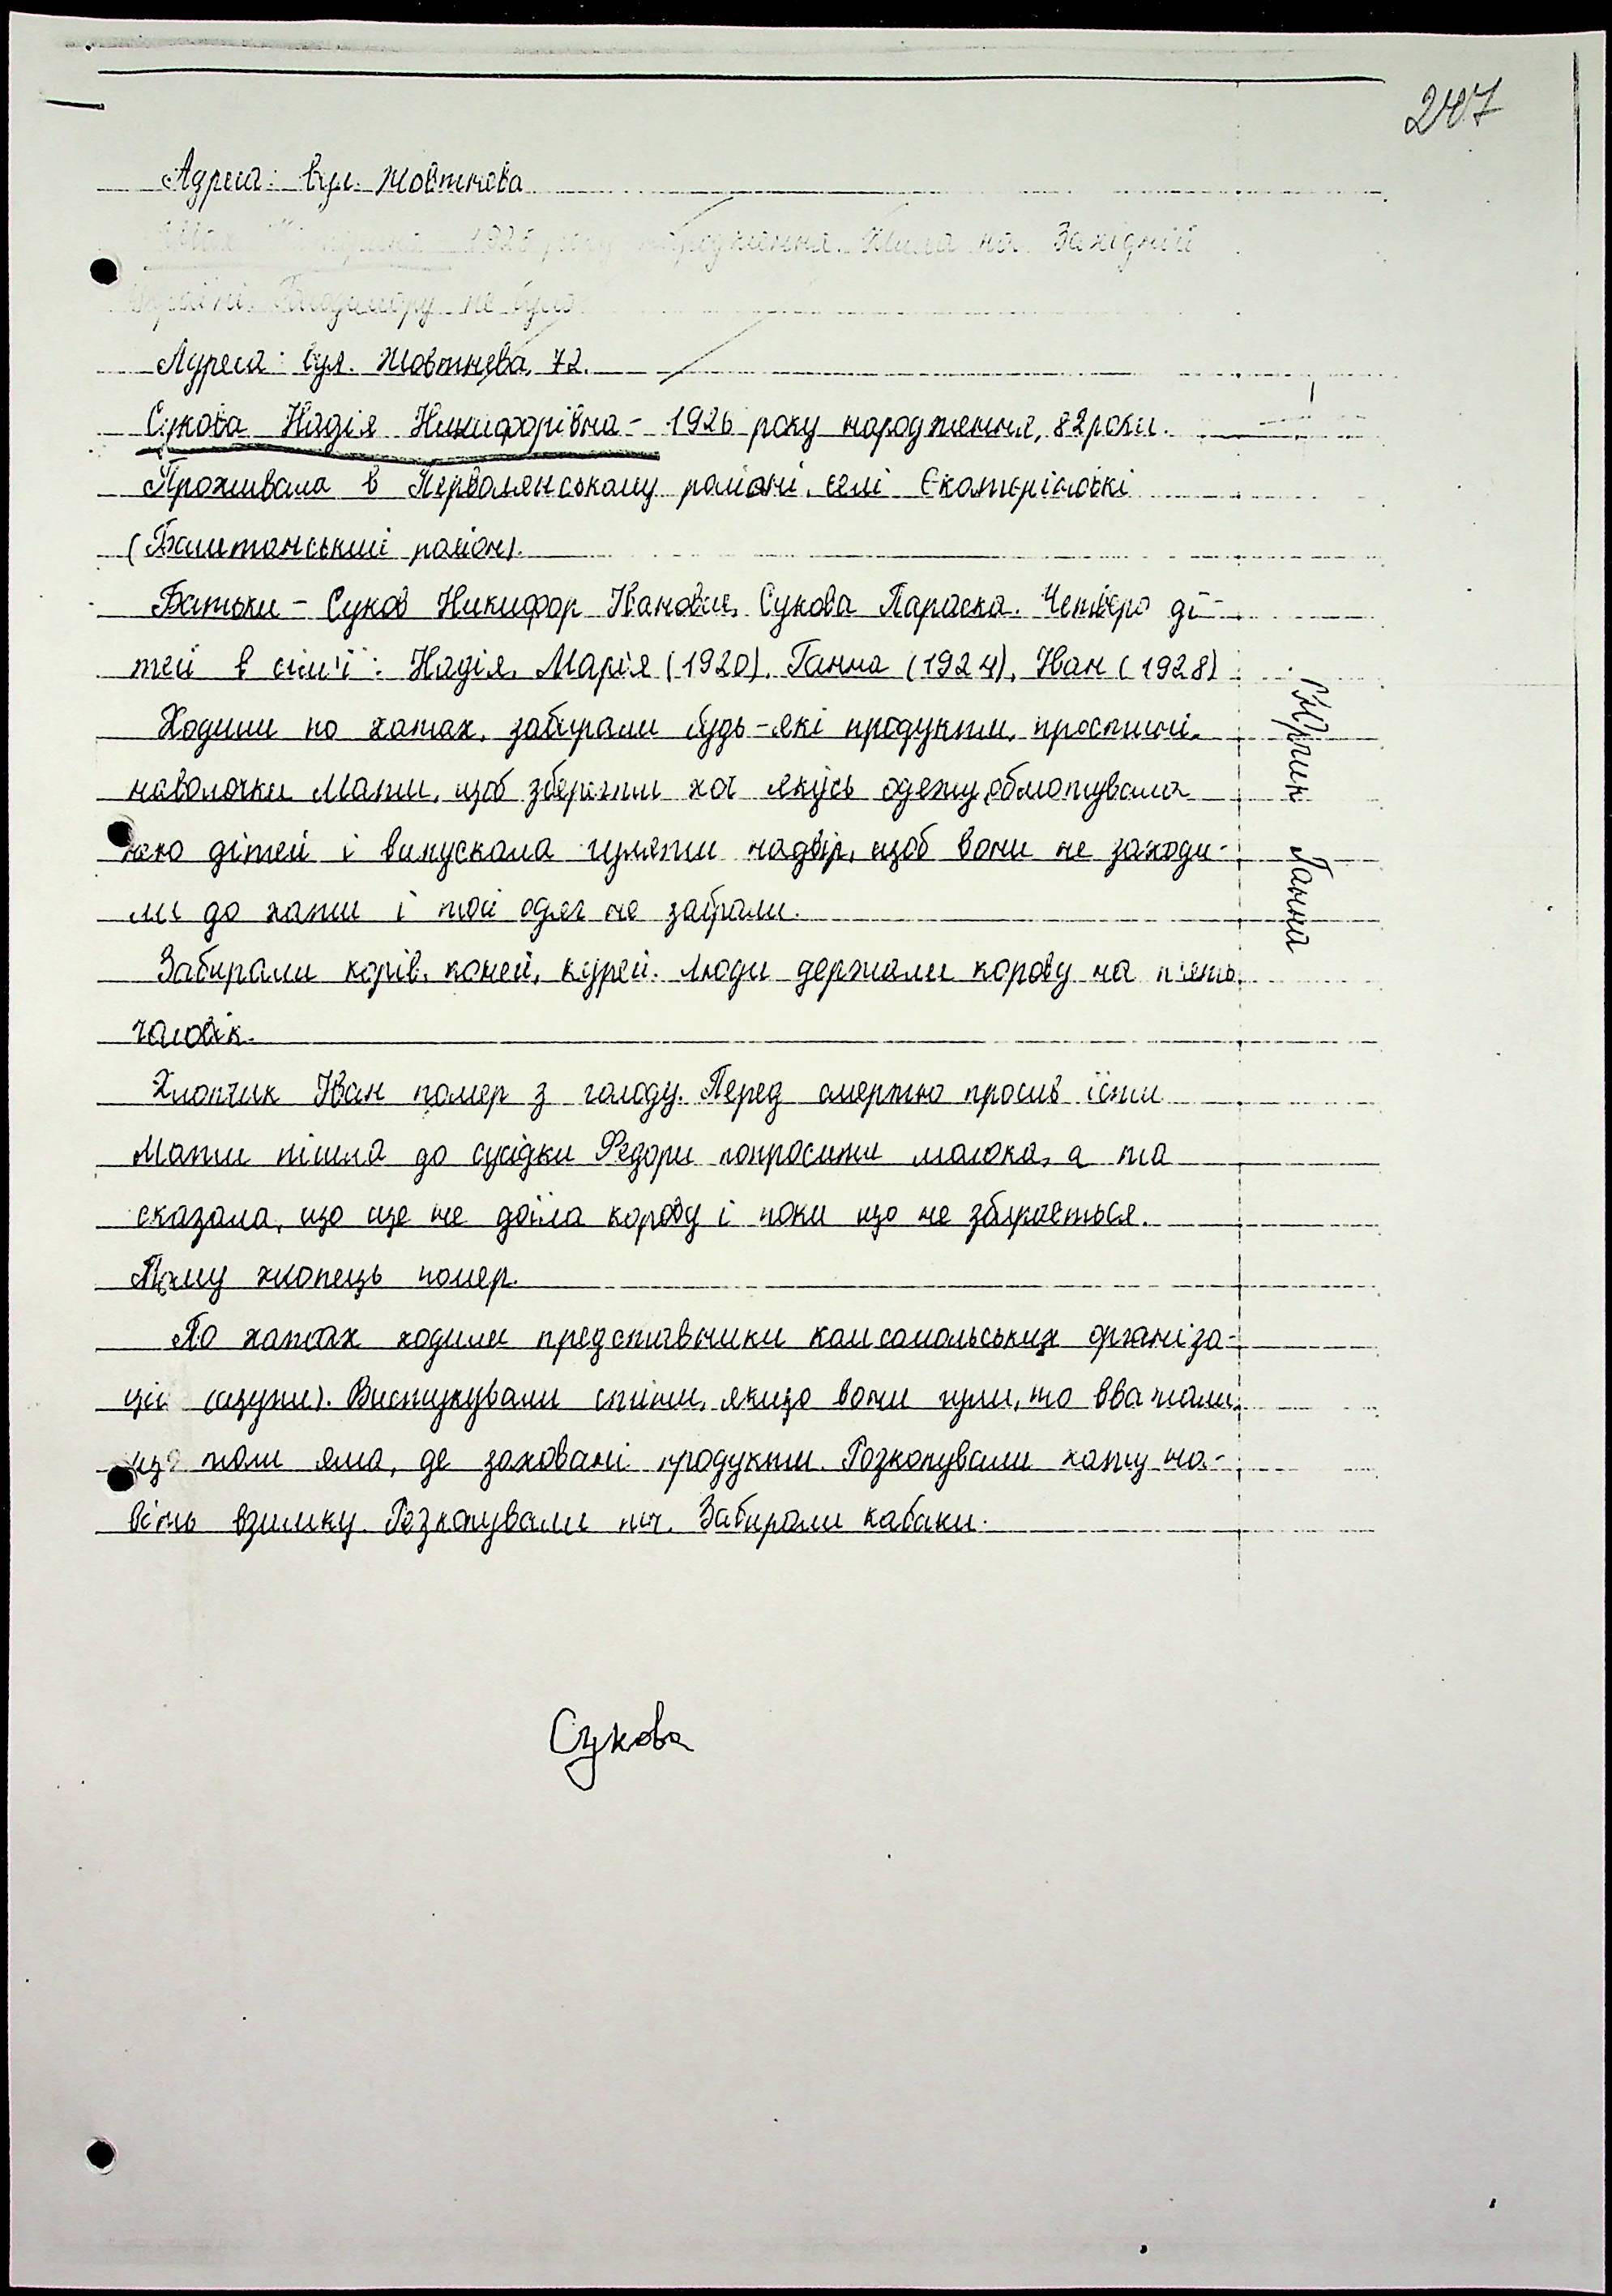 247
Адреса: вул. Жовтнева
1925 року народження. Жила на Західній
Україні. Голодомору не було
Адреса: вул. Жовтнева, 72.
Сукова Надія Никифорівна - 1926 року народження, 82 роки.
Проживала в Первомайському районі, селі Єкатеріновкі
(Баштанський район).
Батьки - Суков Никифор Іванович, Сукова Параска. Четверо ді-
тей в сім'ї: Надія, Марія (1920), Ганна (1924), Іван (1928)
Ходили по хатах, забирали будь-які продукти, простині,
наволочки. Мати, щоб зберегти хоч якусь одежу, обмотувала
нею дітей і випускала гуляти надвір, щоб вони не заходи-
ли до хати і той одяг не забрали.
Забирали корів, коней, курей. Люди держали корову на п'ять
чоловік.
Хлопчик Іван помер з голоду. Перед смертю просив їсти
Мати пішла до сусідки Федори попросити молока, а та
сказала, що ще не доїла корову і поки що не збирається.
Тому хлопець помер.
По хатах ходили представники комсомольських організа-
цій (щупи). Вистукували стіни, якщо вони гули, то вважали,
що там яма, де заховані продукти. Розкопували хату на-
віть взимку. Розкопували піч. Забирали кабаки.
Ганна
Сукова